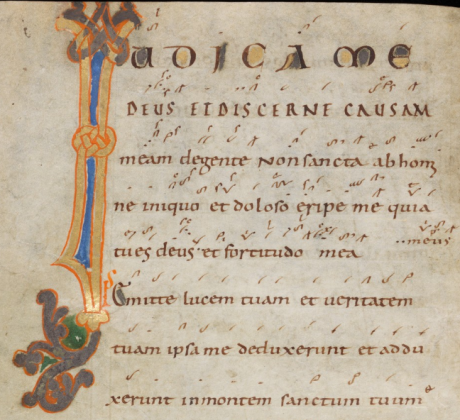 IUDICA ME
DEUS ET DISCERNE CAUSAM
meam degente non sancta ab homi
ne iniquo et doloso eripe me quia
tu es deus et fortitudo mea
meus
Emitte lucem tuam et veritatem
tuam ipsa me deduxerunt et addu
xerunt in montem sanctum tuum